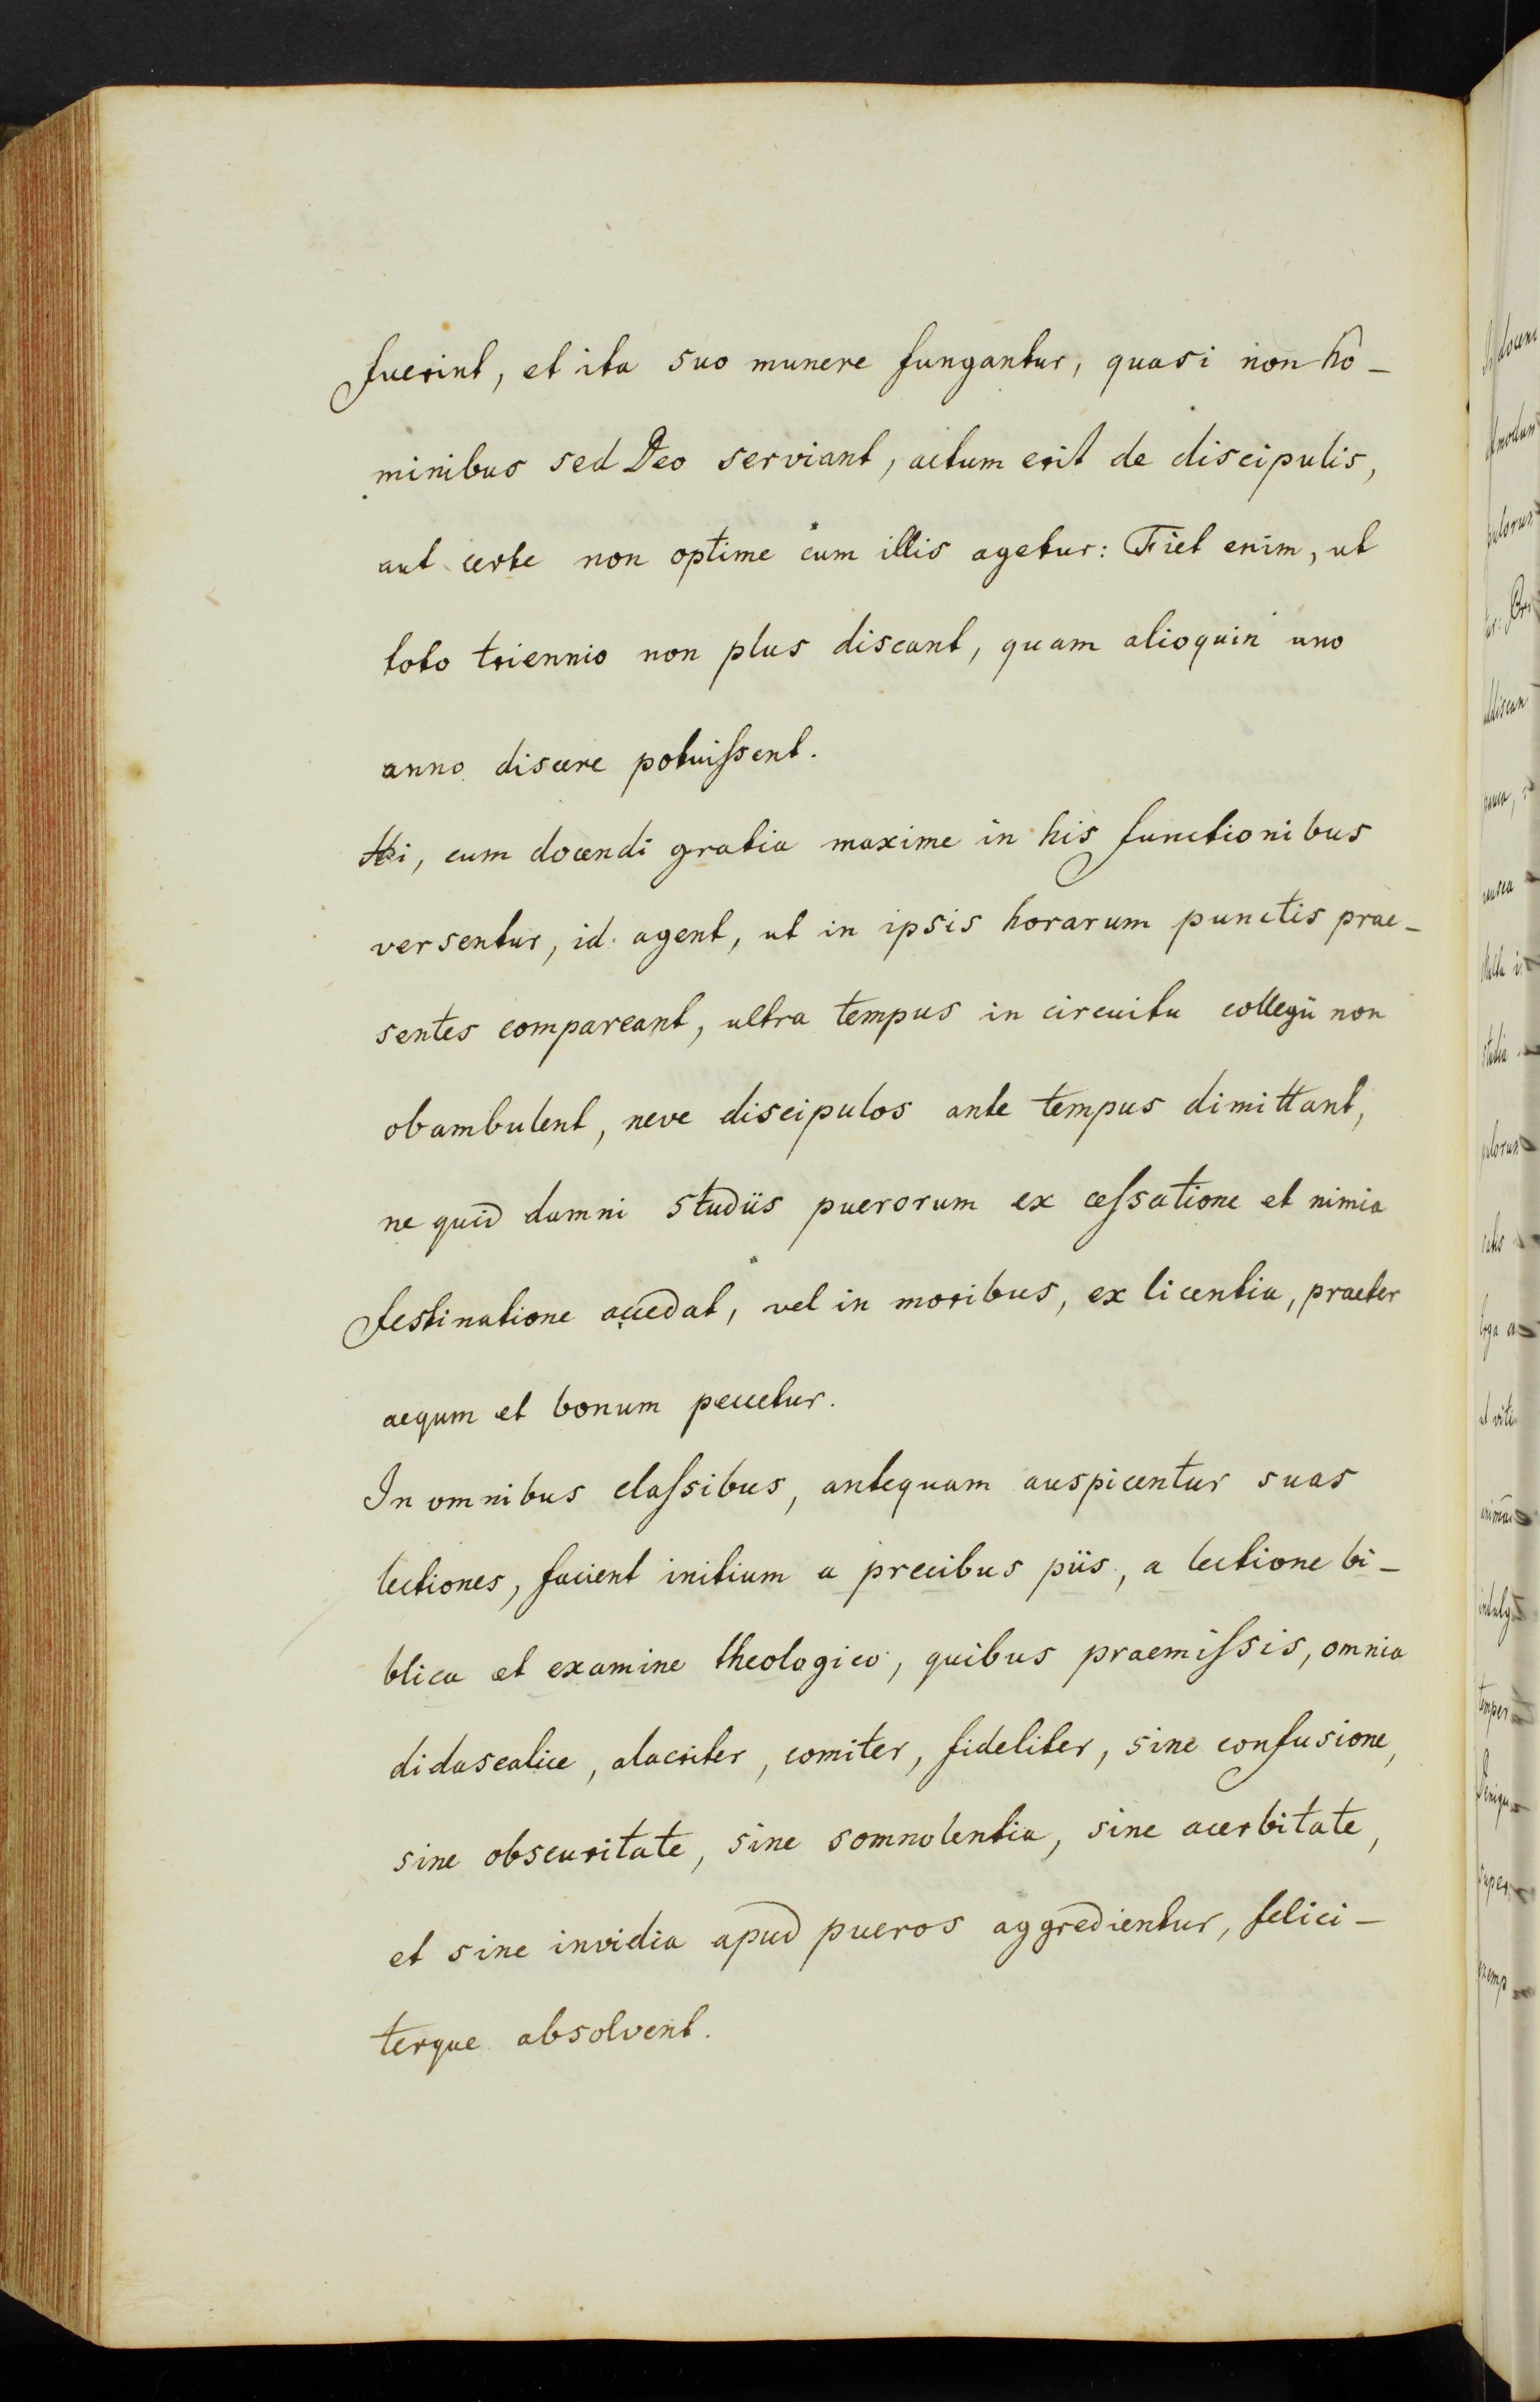 fuerint, et ita suo munere fungantur, quasi non ho-
minibus sed Deo serviant, actum erit de discipulis,
aut certe non optime cum illis agetur: Fiet enim, ut
toto triennio non plus discant, quam alioquin uno
anno discere potuiſsent.
Hi, cum docendi gratia maxime in his functionibus
versentur, id agent, ut in ipsis horarum punctis prae-
sentes compareant, ultra tempus in circuitu collegii non
obambulent, neve discipulos ante tempus dimittant,
ne quid damni studiis puerorum ex ceſsatione et nimia
festinatione accedat, vel in moribus, ex licentia, praeter
aequm et bonum peccetur.
In omnibus claſsibus, antequam auspicentur suas
lectiones, facient initium a precibus piis, a lectione bi-
blica et examine theologico, quibus praemiſsis, omnia
didascalice, alacriter, comiter, fideliter, sine confusione,
sine obscuritate, sine somnolentia, sine acerbitate,
et sine invidia apud pueros aggredientur, felici-
terque absolvent.